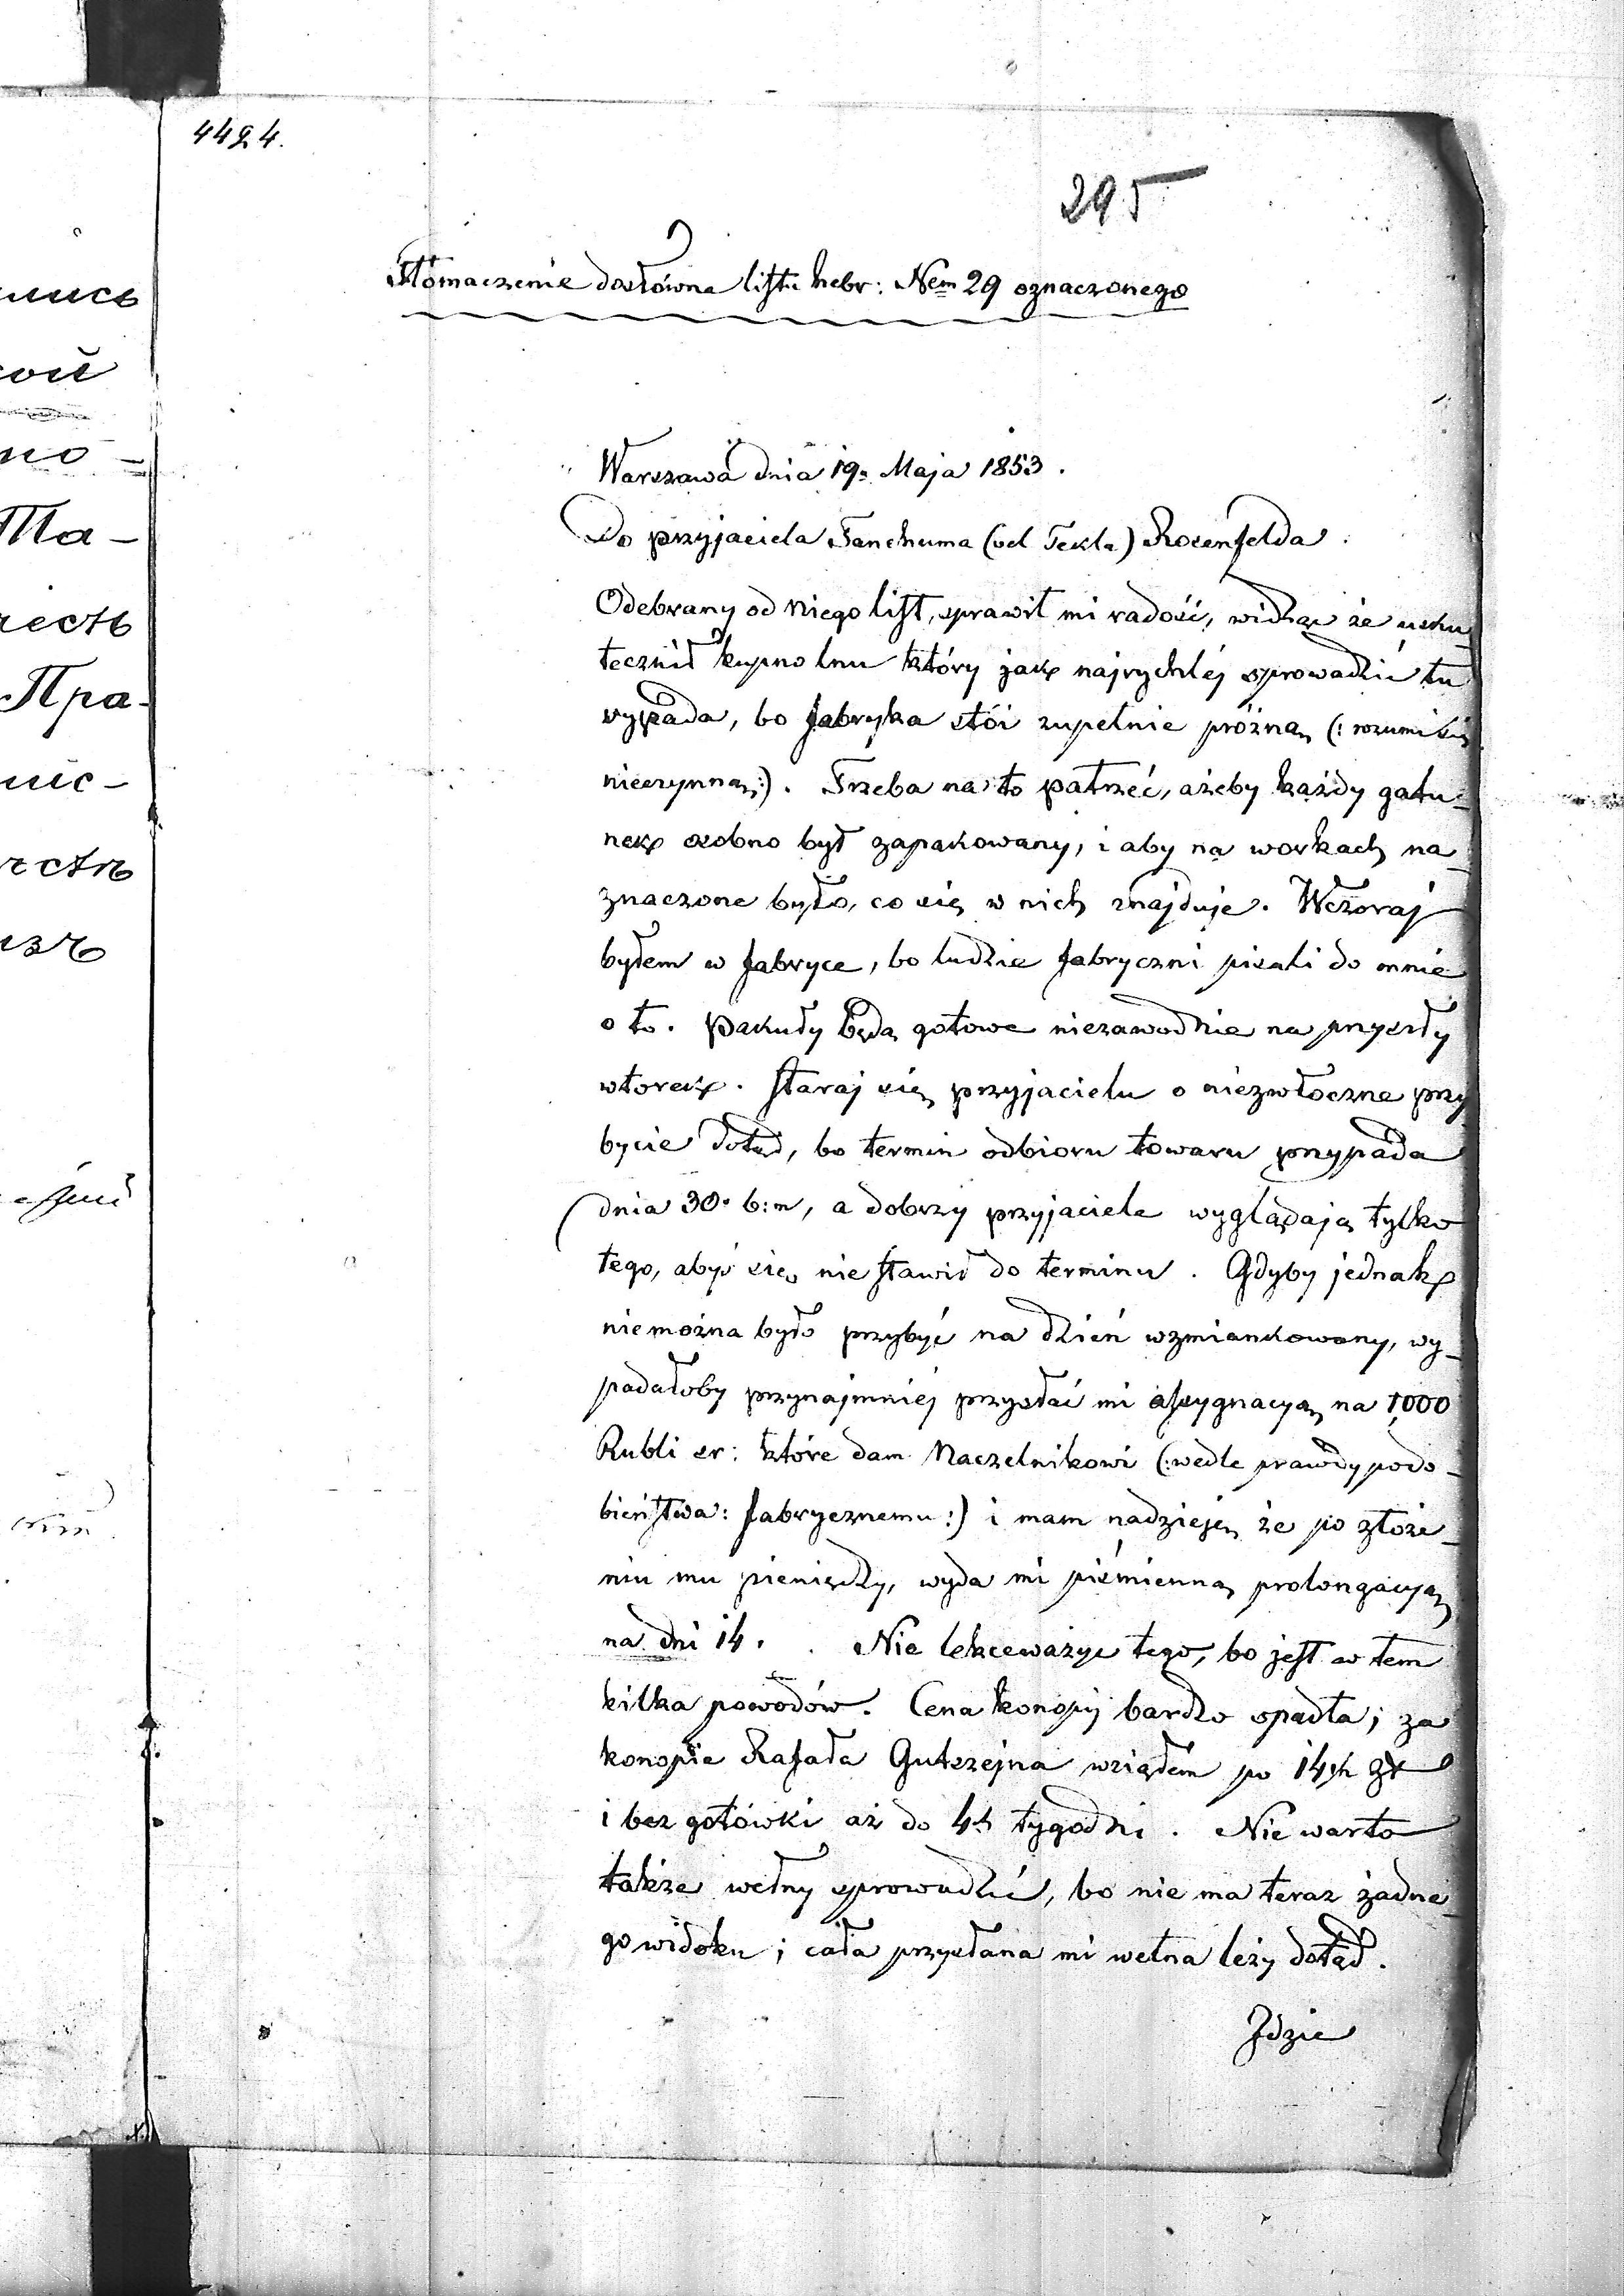 4424.
295
Tłómaczenie dosłówne listu hebr: Nem 29 oznaczonego
Warszawa dnia 19. Maja 1853.
Do przyjaciela Tanchuma (vel Tekla) Rosenfelda.
Odebrany od niego list, sprawił mi radość, widząc że usku_
tecznił kupno lnu który jak najrychléj sprowadzić tu
wypada, bo fabryka stói zupełnie próżna, (: rozumi się
nieczynna :). Trzeba na to patrzéć, ażeby każdy gatu_
nek osobno był zapakowany, i aby na workach na_
znaczone było, co się w nich znajduje. Wczoraj
byłem w fabryce, bo ludzie fabryczni pisali do mnie
o to. Pakuły będą gotowe niezawodnie na przyszły
wtorek. Staraj się przyjacielu o niezwłoczne przy
bycie dotąd, bo termin odbioru towaru przypada
dnia 30. b:m, a dobrzy przyjaciele wyglądają tylko
tego, abyś się nie stawił do terminu. Gdyby jednak
niemożna było przybyć na dzień wzmiankowany, wy_
padałoby przynajmniéj przysłać mi assygnacyą na 1000
Rubli sr: które dam Naczelnikowi (: wedle prawdypodo_
bieństwa: fabrycznemu :) i mam nadzieję, że po złoże_
niu mu pieniędzy, wyda mi piśmienną prolongacyą
na dni 14. Nie lekceważyć tego, bo jest w tem
kilka powodów. Cena konopij bardzo spadła; za
konopie Rafała Gutszejna wziąłem po 14 zł
i bez gotówki aż do 4ch tygodni. Nie warto
także wełny sprowadzić, bo nie ma teraz żadne_
go widoku; cała przysłana mi wełna leży dotąd.
Idzie